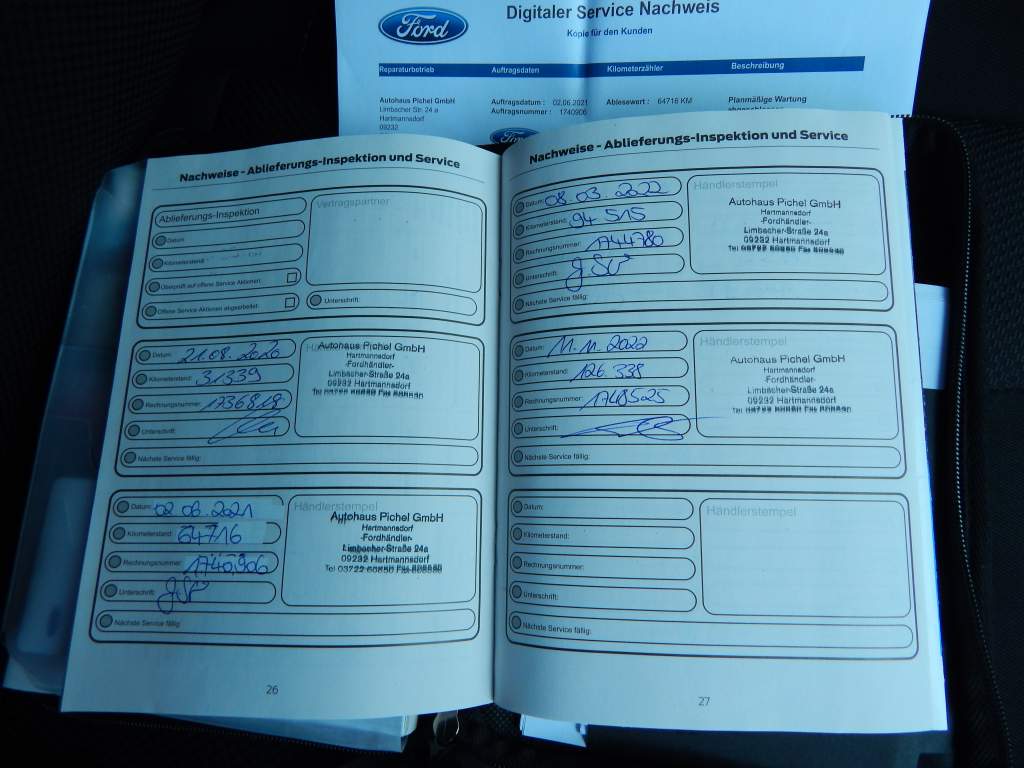 Ford
Digitaler Service Nachweis
Kopie für den Kunden
Reparaturbetrieb Auftragsdaten Kilometerzähler Beschreibung
Autohaus Pichel GmbH Auftragsdatum : 02.06.2021 Ablesewert : 64716 KM Planmäßige Wartung
Limbacher Str. 24 a Auftragsnummer : 1740906
Hartmannsdorf
09232
Ford
Nachweise - Ablieferungs-Inspektion und Service
Ablieferungs-Inspektion
Vertragspartner
Datum:
Kilometerstand:
Überprüft auf offene Service Aktionen:
Offene Service Aktionen abgearbeitet:
Unterschrift:
Datum: 21.08.2020
Kilometerstand: 31339
Rechnungsnummer: 1736818
Unterschrift:
Nächste Service fällig:
Autohaus Pichel GmbH
Hartmannsdorf
-Fordhändler-
Limbacher-Straße 24a
09232 Hartmannsdorf
Datum: 02.06.2021
Kilometerstand: 64716
Rechnungsnummer: 1740906
Unterschrift:
Nächste Service fällig:
Händlerstempel
Autohaus Pichel GmbH
Hartmannsdorf
-Fordhändler-
Limbacher-Straße 24a
09232 Hartmannsdorf
26
Nachweise - Ablieferungs-Inspektion und Service
Datum: 08.03.2022
Kilometerstand: 94515
Rechnungsnummer: 1744780
Unterschrift:
Nächste Service fällig:
Händlerstempel
Autohaus Pichel GmbH
Hartmannsdorf
-Fordhändler-
Limbacher-Straße 24a
09232 Hartmannsdorf
Datum: 11.11.2022
Kilometerstand: 126.338
Rechnungsnummer: 1748525
Unterschrift:
Nächste Service fällig:
Händlerstempel
Autohaus Pichel GmbH
Hartmannsdorf
-Fordhändler-
Limbacher-Straße 24a
09232 Hartmannsdorf
Datum:
Kilometerstand:
Rechnungsnummer:
Unterschrift:
Nächste Service fällig:
Händlerstempel
27